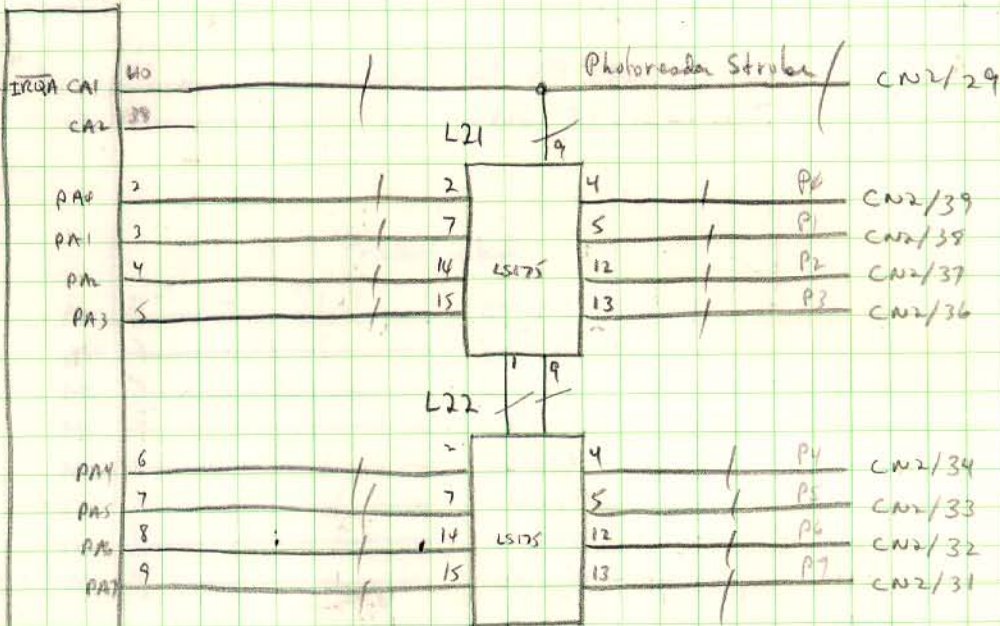 40 Photoreader Strobe CN2/29
IRQA CA1
CA2 39
L21 9
PA0 2 2 4 P0 CN2/39
PA1 3 7 5 P1 CN2/38
PA2 4 14 LS175 12 P2 CN2/37
PA3 5 15 13 P3 CN2/36
1 9
L22
PA4 6 2 4 P4 CN2/34
PA5 7 7 5 P5 CN2/33
PA6 8 14 LS175 12 P6 CN2/32
PA7 9 15 13 P7 CN2/31